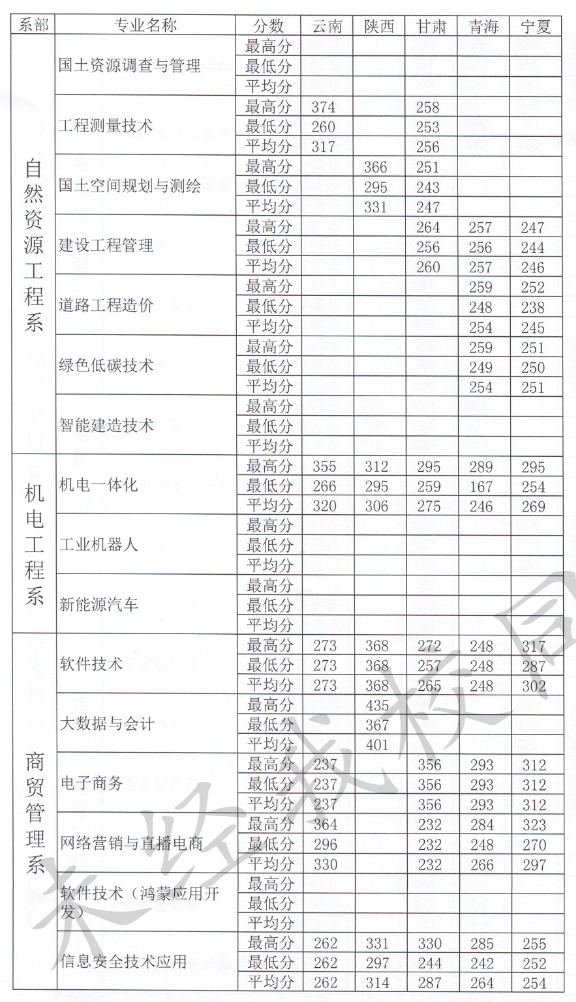 系部 专业名称 分数 云南 陕西 甘肃 青海 宁夏
自然资源工程系
国土资源调查与管理
最高分
最低分
平均分
工程测量技术
最高分 374 258
最低分 260 253
平均分 317 256
国土空间规划与测绘
最高分 366 251
最低分 295 243
平均分 331 247
建设工程管理
最高分 264 257 247
最低分 256 256 244
平均分 260 257 246
道路工程造价
最高分 259 252
最低分 248 238
平均分 254 245
绿色低碳技术
最高分 259 251
最低分 249 250
平均分 254 251
智能建造技术
最高分
最低分
平均分
机电工程系
机电一体化
最高分 355 312 295 289 295
最低分 266 295 259 167 254
平均分 320 306 275 246 269
工业机器人
最高分
最低分
平均分
新能源汽车
最高分
最低分
平均分
商贸管理系
软件技术
最高分 273 368 272 248 317
最低分 273 368 257 248 287
平均分 273 368 265 248 302
大数据与会计
最高分 435
最低分 367
平均分 401
电子商务
最高分 237 356 293 312
最低分 237 356 293 312
平均分 237 356 293 312
网络营销与直播电商
最高分 364 232 284 323
最低分 296 232 248 270
平均分 330 232 266 297
软件技术（鸿蒙应用开
发）
最高分
最低分
平均分
信息安全技术应用
最高分 262 331 330 285 255
最低分 262 297 244 242 252
平均分 262 314 287 264 254
未经我校同